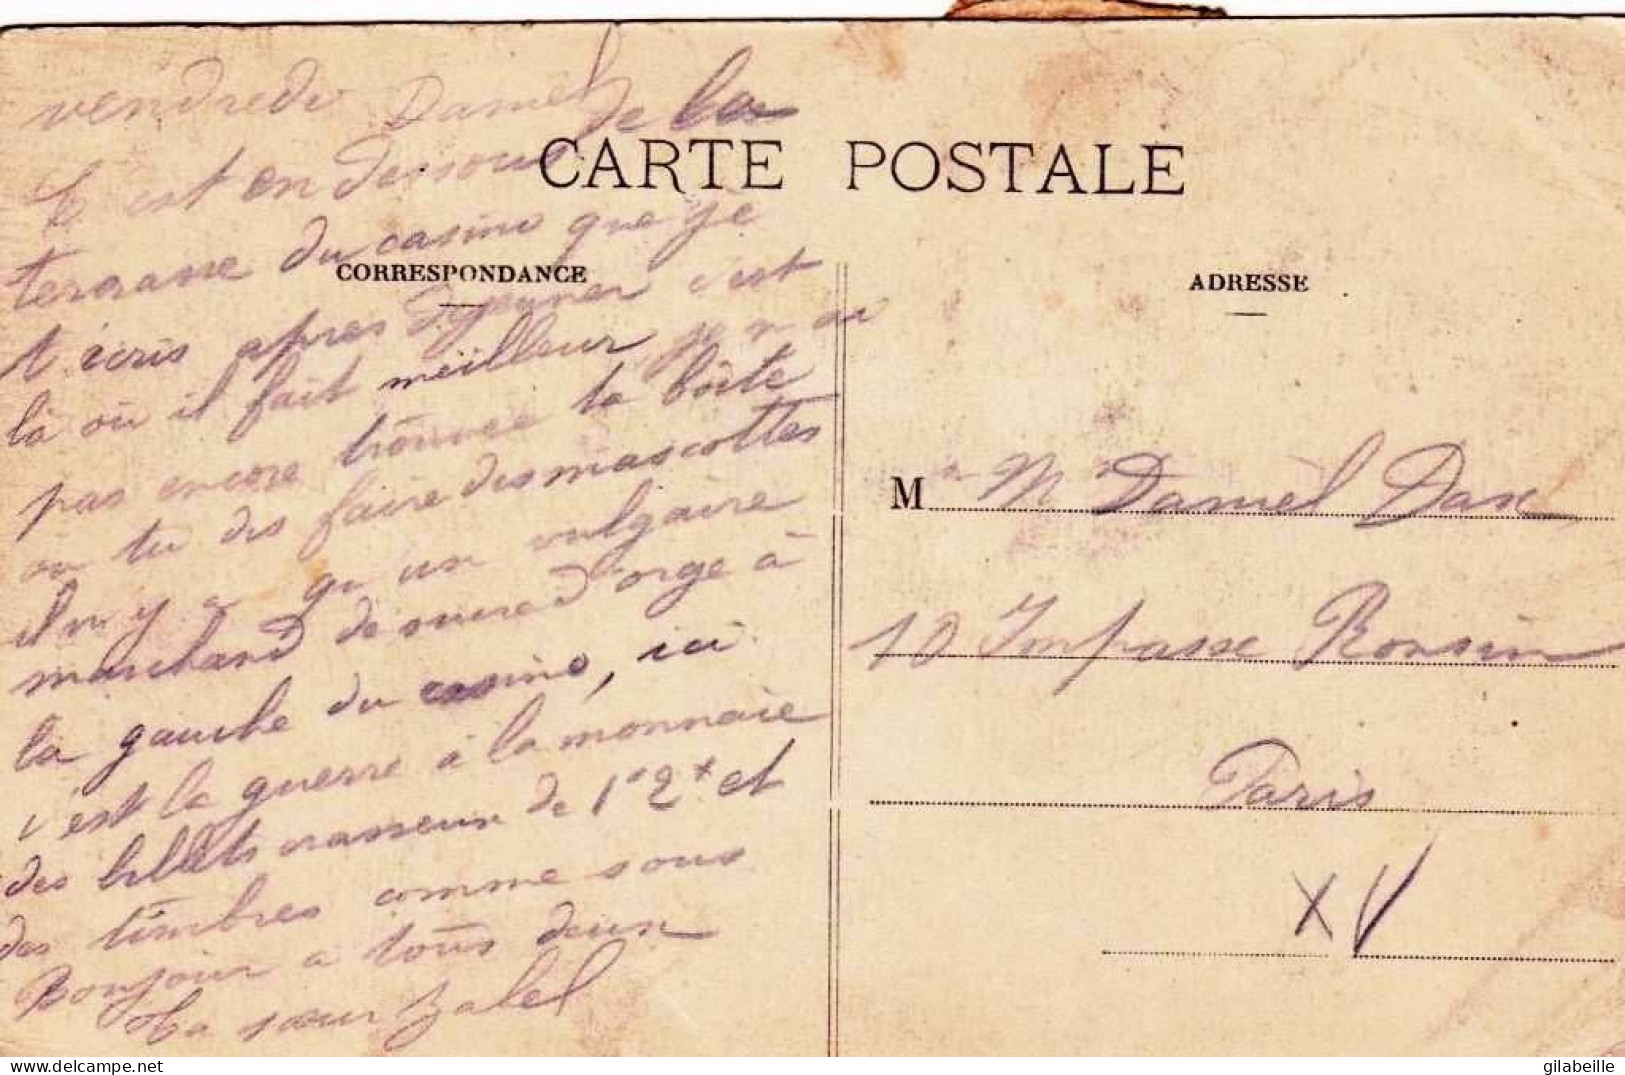 vendredi Daniel
C est en dessous de la
terrasse du casino que je
t écris apres dejeuner c'est
là où il fait meilleur, je n ai
pas encore trouvée ta boîte
ou tu dis faire des mascottes
il n y a qu un vulgaire
marchand de sucre d'orge à
la gauche du casino, ici
c'est la guerre à la monnaie
des billets crasseux de 1 2 et
des timbres comme sous
Bonjour a tous deux
ta sœur Izabel
CARTE POSTALE
CORRESPONDANCE
ADRESSE
M M Daniel Dax
10 Impasse Ronsin
Paris
XV
gilabeille